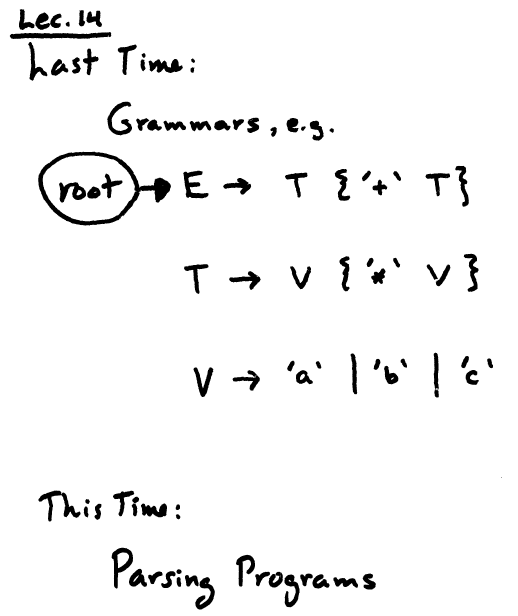 Lec. 14
Last Time:
Grammars, e.g.
root → E → T {'+' T}
T → V {'*' V}
V → 'a' | 'b' | 'c'
This Time:
Parsing Programs